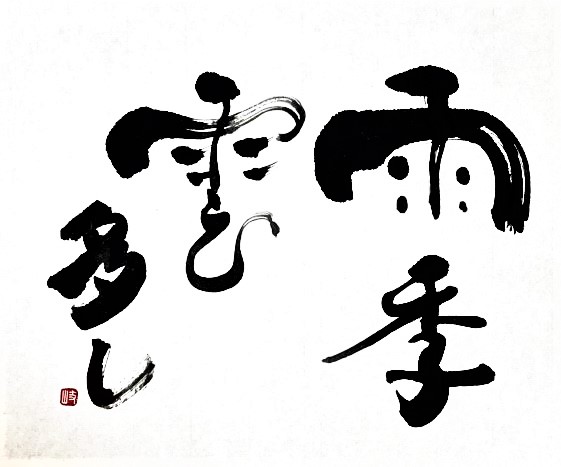 雨季
雲
多し
岐